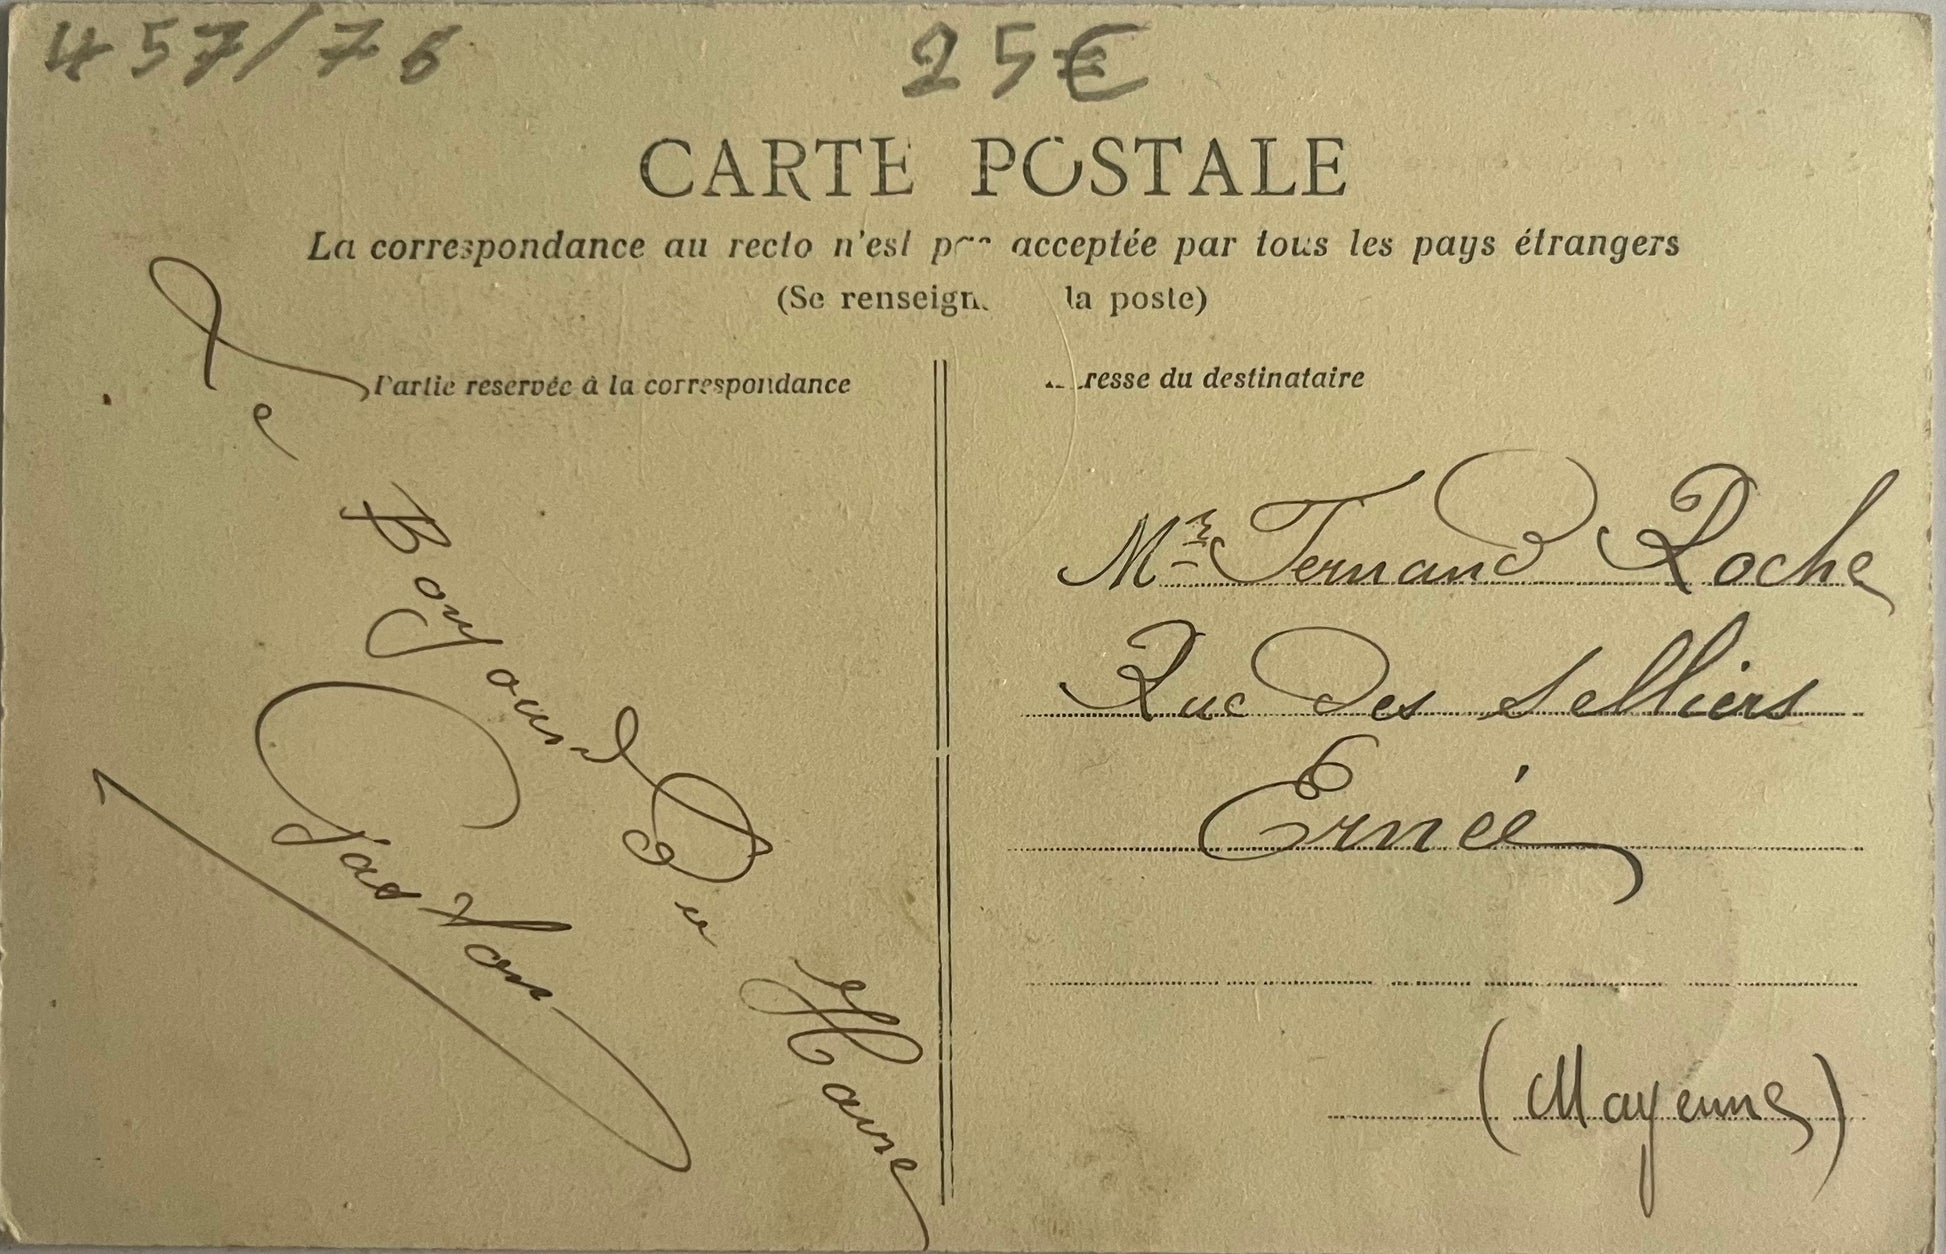 457/76
25€
CARTE POSTALE
La correspondance au recto n'est pas acceptée par tous les pays étrangers
(Se renseign la poste)
Partie reservée à la correspondance
Le Bonjour du Havre
Gaston
resse du destinataire
Mr Fernand Roche
Rue des Selliers
Ernée
(Mayenne)